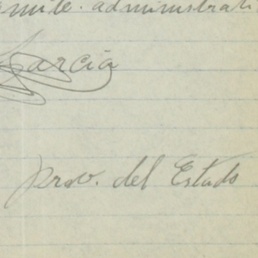 administrati
García
prov. del Estado